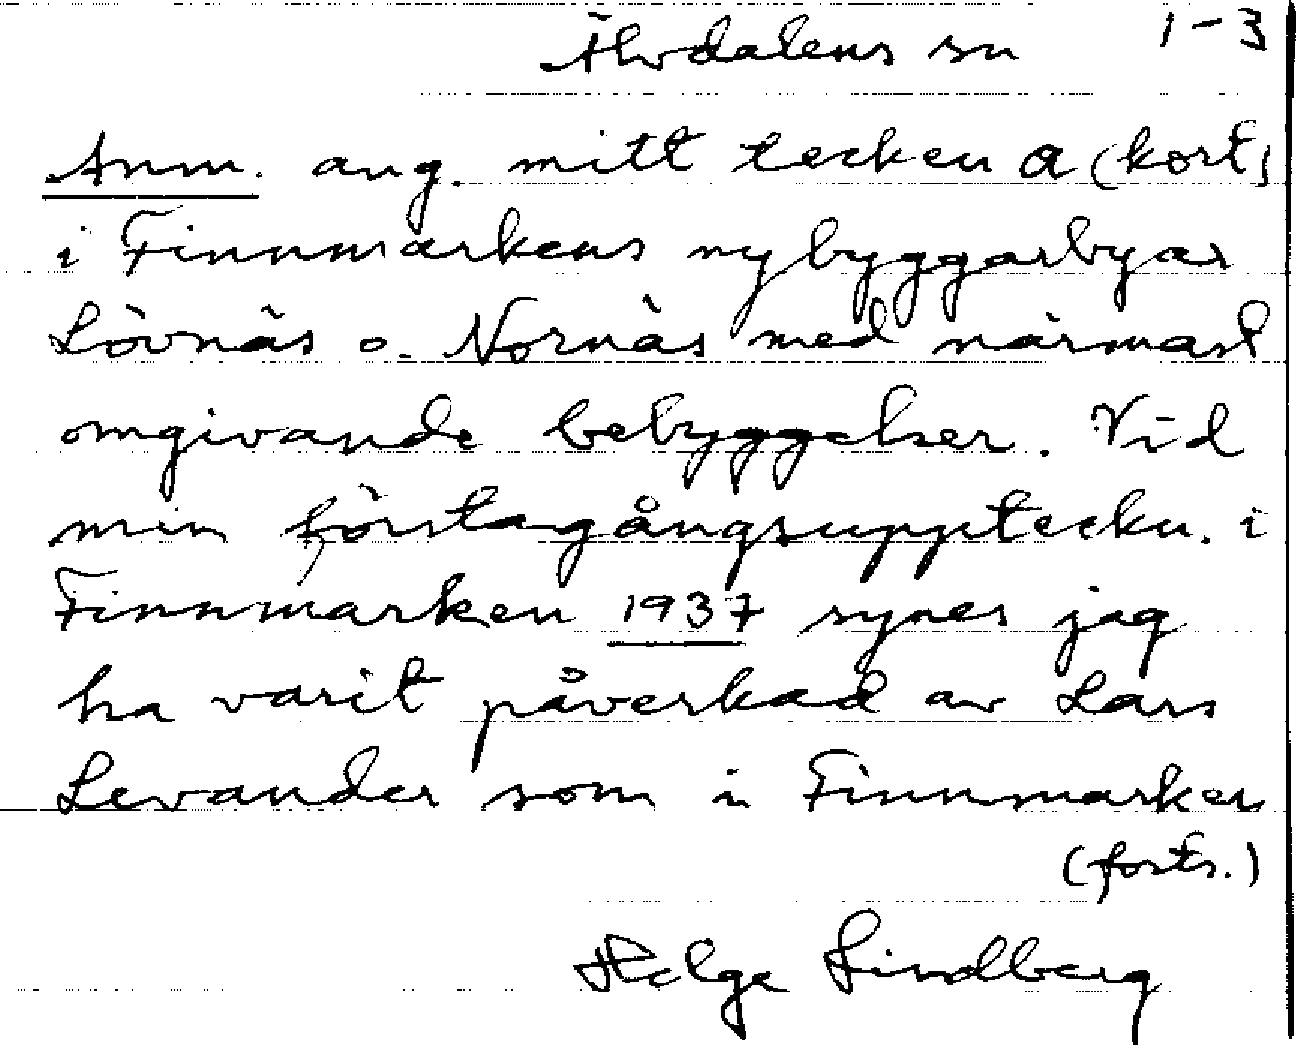 Älvdalens sn 1-3
Anm. ang. mitt tecken a (kort)
i Finnmarkens nybyggarbyar
Lövnäs o. Nornäs med närmast
omgivande bebyggelser. Vid
min förstagångsuppteckn. i
Finnmarken 1937 synes jag
ha varit påverkad av Lars
Levander som i Finnmarken
(forts.)
Helge Lindberg